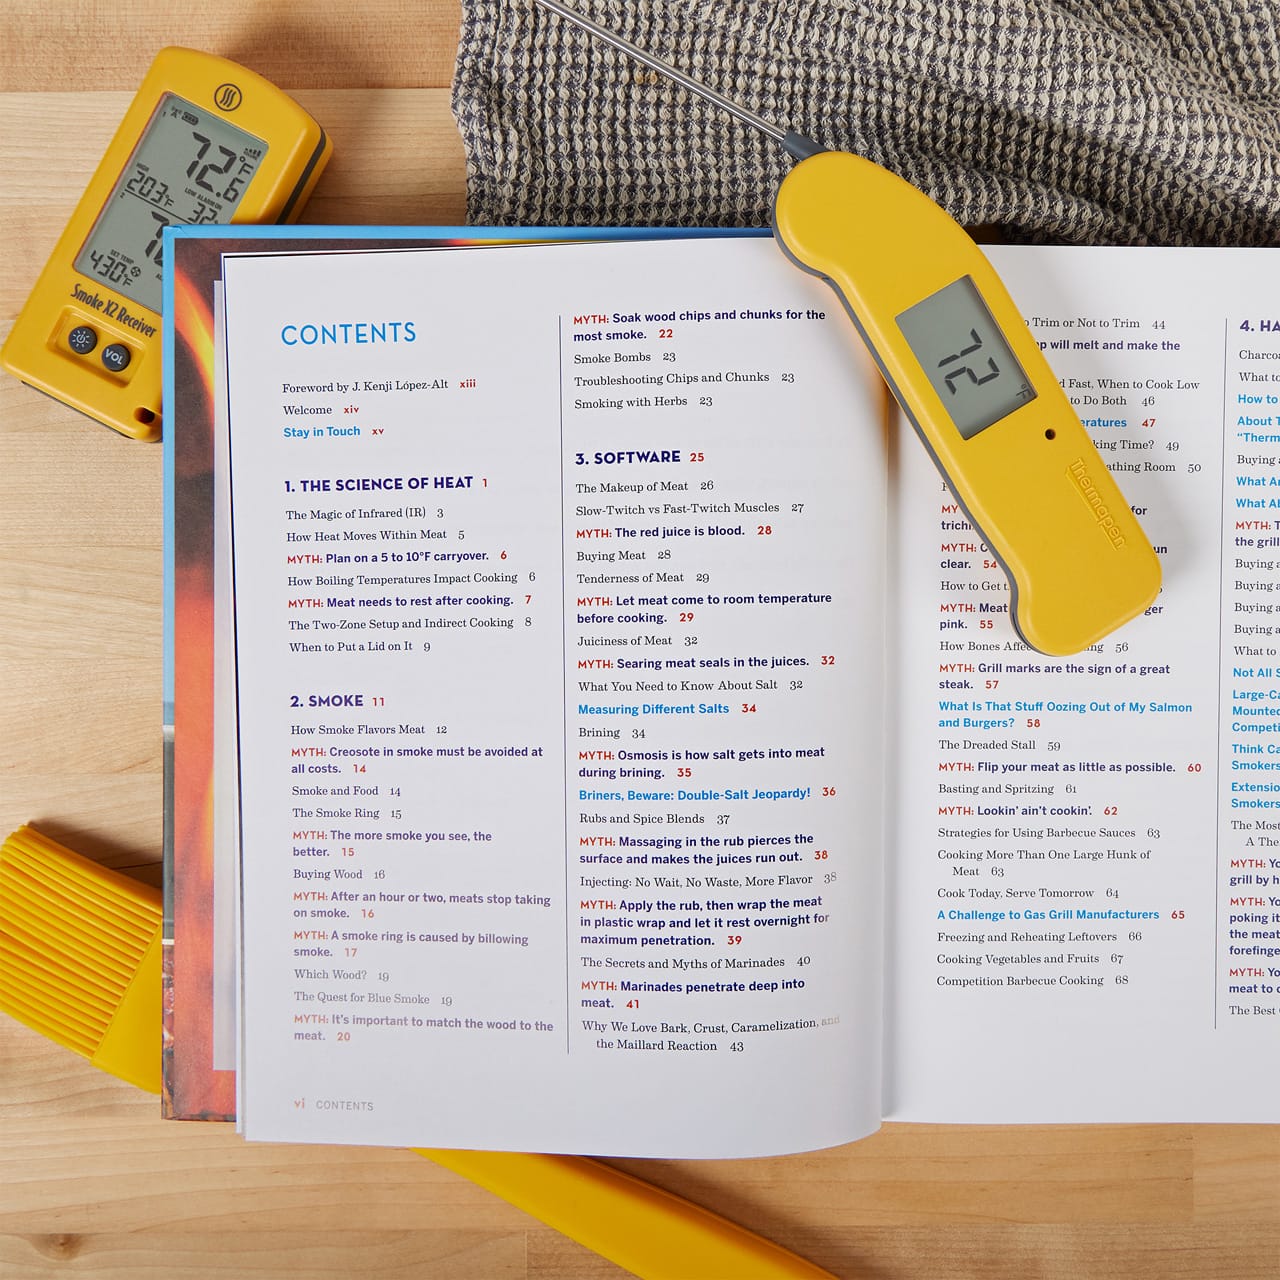 72.6°F
203°F
LOW ALARM ON
32
SET TEMP
430°F
Smoke X2 Receiver
VOL
72°F
Thermapen
CONTENTS
Foreword by J. Kenji López-Alt xiii
Welcome xiv
Stay in Touch xv
1. THE SCIENCE OF HEAT 1
The Magic of Infrared (IR) 3
How Heat Moves Within Meat 5
MYTH: Plan on a 5 to 10°F carryover. 6
How Boiling Temperatures Impact Cooking 6
MYTH: Meat needs to rest after cooking. 7
The Two-Zone Setup and Indirect Cooking 8
When to Put a Lid on It 9
2. SMOKE 11
How Smoke Flavors Meat 12
MYTH: Creosote in smoke must be avoided at
all costs. 14
Smoke and Food 14
The Smoke Ring 15
MYTH: The more smoke you see, the
better. 15
Buying Wood 16
MYTH: After an hour or two, meats stop taking
on smoke. 16
MYTH: A smoke ring is caused by billowing
smoke. 17
Which Wood? 19
The Quest for Blue Smoke 19
MYTH: It's important to match the wood to the
meat. 20
vi CONTENTS
MYTH: Soak wood chips and chunks for the
most smoke. 22
Smoke Bombs 23
Troubleshooting Chips and Chunks 23
Smoking with Herbs 23
3. SOFTWARE 25
The Makeup of Meat 26
Slow-Twitch vs Fast-Twitch Muscles 27
MYTH: The red juice is blood. 28
Buying Meat 28
Tenderness of Meat 29
MYTH: Let meat come to room temperature
before cooking. 29
Juiciness of Meat 32
MYTH: Searing meat seals in the juices. 32
What You Need to Know About Salt 32
Measuring Different Salts 34
Brining 34
MYTH: Osmosis is how salt gets into meat
during brining. 35
Briners, Beware: Double-Salt Jeopardy! 36
Rubs and Spice Blends 37
MYTH: Massaging in the rub pierces the
surface and makes the juices run out. 38
Injecting: No Wait, No Waste, More Flavor 38
MYTH: Apply the rub, then wrap the meat
in plastic wrap and let it rest overnight for
maximum penetration. 39
The Secrets and Myths of Marinades 40
MYTH: Marinades penetrate deep into
meat. 41
Why We Love Bark, Crust, Caramelization, and
the Maillard Reaction 43
Trim or Not to Trim 44
will melt and make the
Fast, When to Cook Low
to Do Both 46
47
Time? 49
Room 50
for
clear. 54
How to Get
MYTH: Meat
pink. 55
How Bones 56
MYTH: Grill marks are the sign of a great
steak. 57
What Is That Stuff Oozing Out of My Salmon
and Burgers? 58
The Dreaded Stall 59
MYTH: Flip your meat as little as possible. 60
Basting and Spritzing 61
MYTH: Lookin' ain't cookin'. 62
Strategies for Using Barbecue Sauces 63
Cooking More Than One Large Hunk of
Meat 63
Cook Today, Serve Tomorrow 64
A Challenge to Gas Grill Manufacturers 65
Freezing and Reheating Leftovers 66
Cooking Vegetables and Fruits 67
Competition Barbecue Cooking 68
4. HA
What to
How to
About
"Therm
Buying
What
What
MYTH:
the grill
Buying
Buying
Buying
Buying
What to
Not All
Mounted
Think
Smokers
Smokers
The Most
A
MYTH:
grill by
MYTH:
poking it
the meat
MYTH:
meat to
The Best